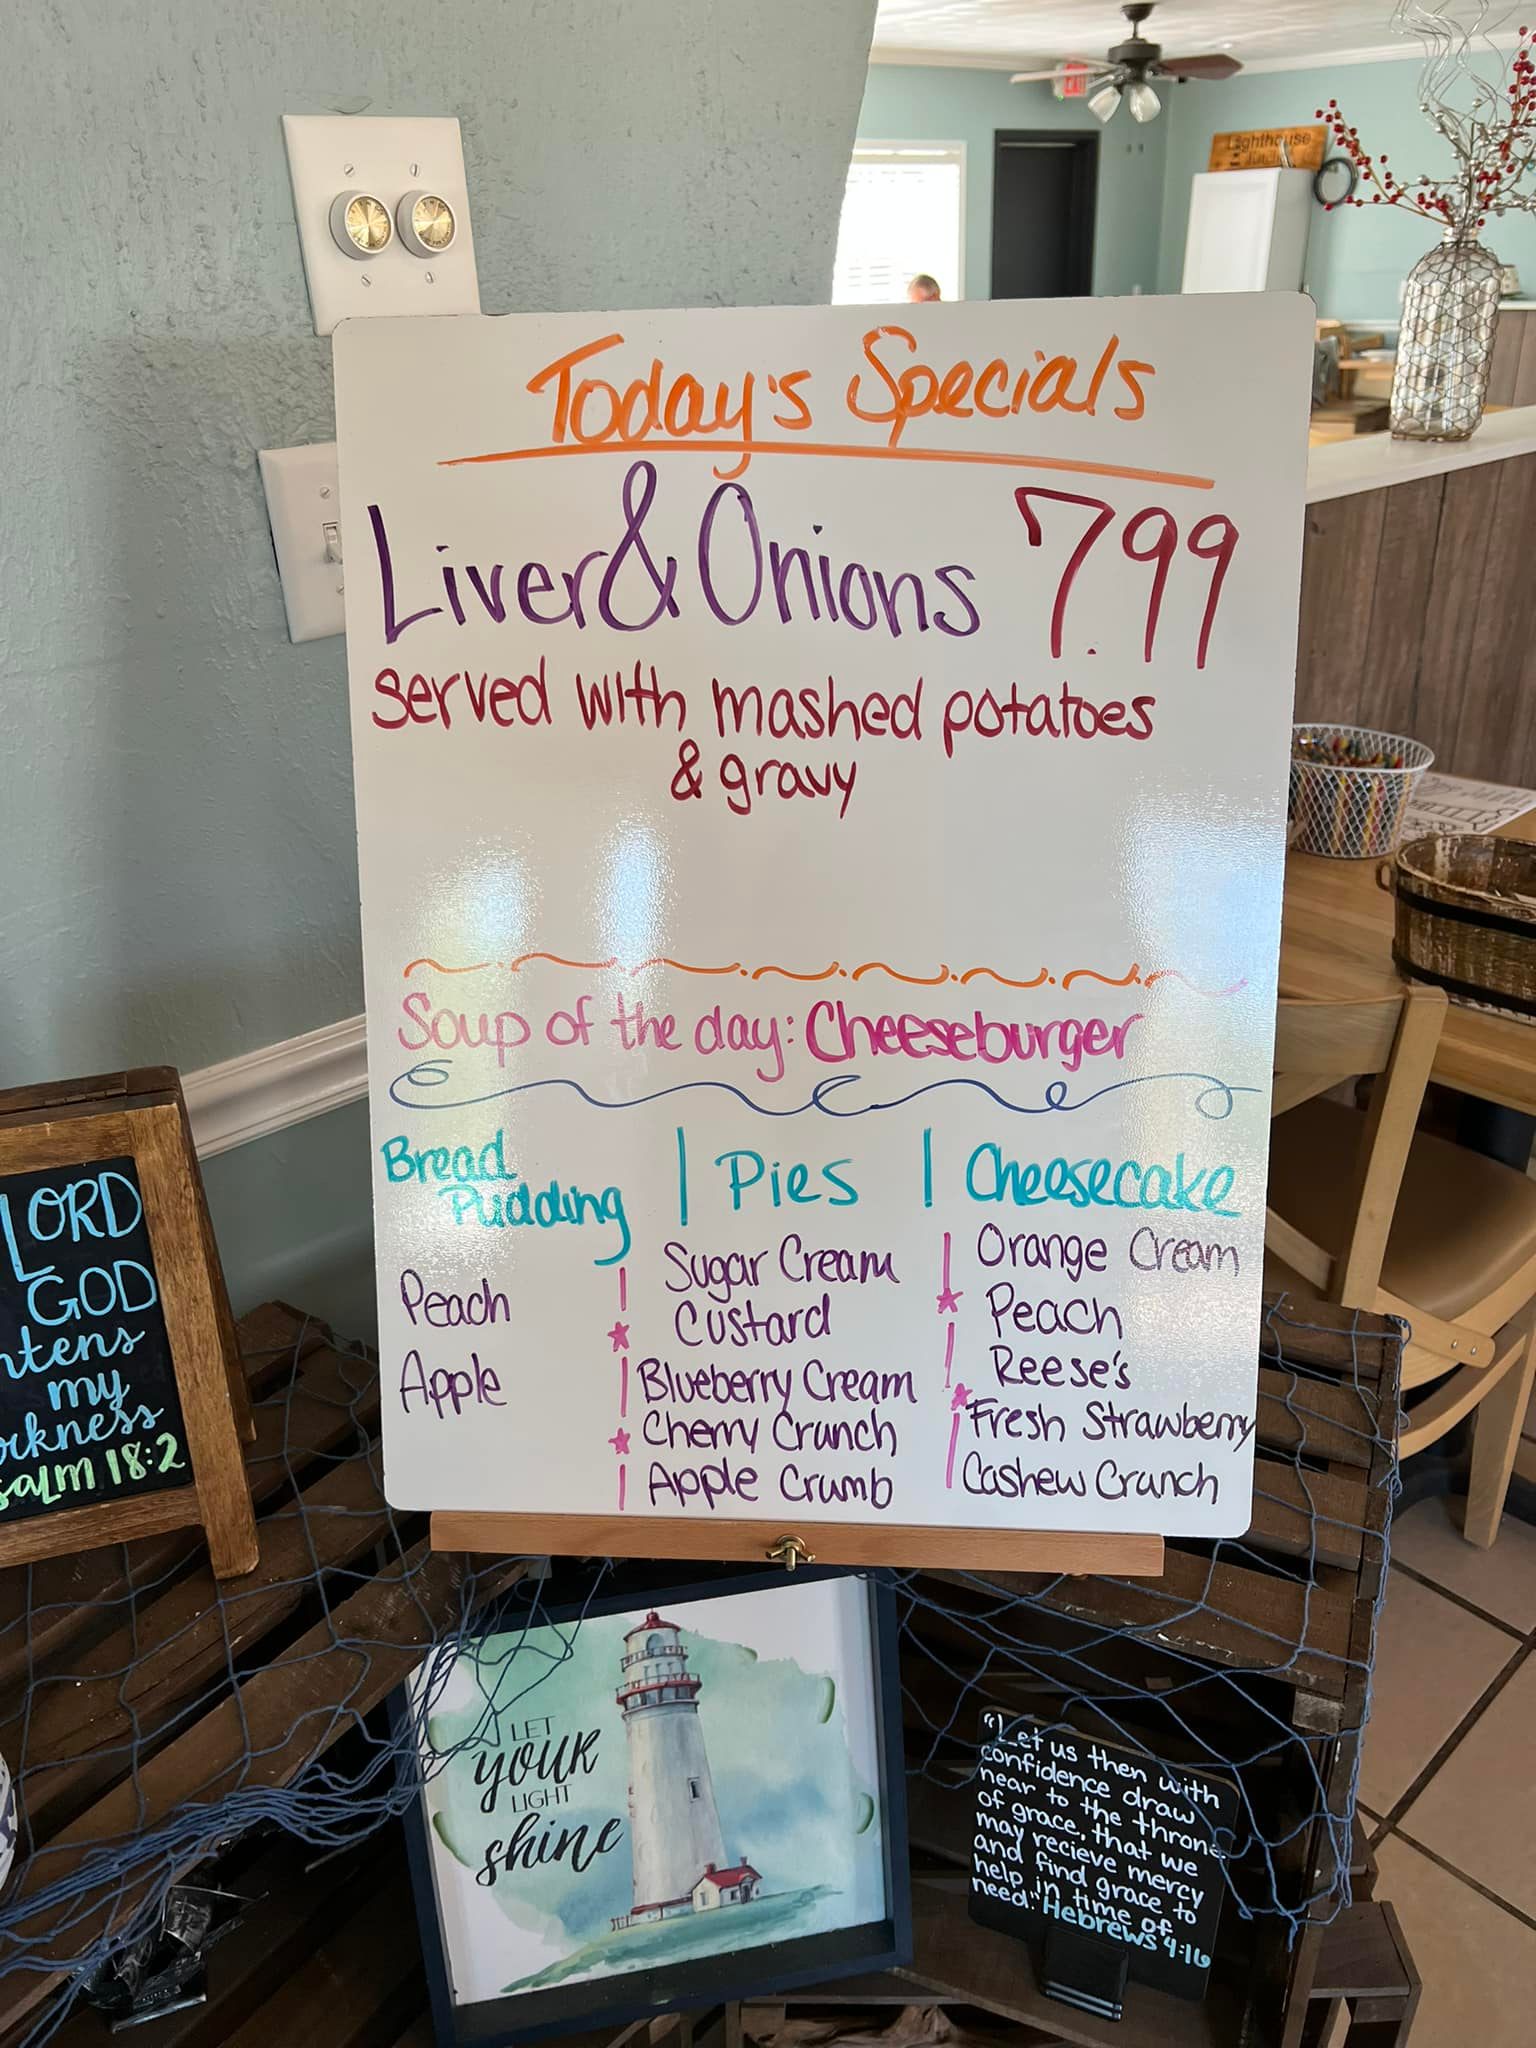 Today's Specials
Liver & Onions 7.99
served with mashed potatoes
& gravy
Soup of the day: Cheeseburger
Bread
Pudding
Peach
Apple
Pies
Sugar Cream
Custard
Blueberry Cream
Cherry Crunch
Apple Crumb
Cheesecake
Orange Cream
Peach
Reese's
Fresh Strawberry
Cashew Crunch
Lighthouse
EXIT
LORD
GOD
my
18:2
LET
YOUR
LIGHT
shine
"Let us then with
confidence draw
near to the throne
of grace, that we
may recieve mercy
and find grace to
help in time of
need." Hebrews 4:16